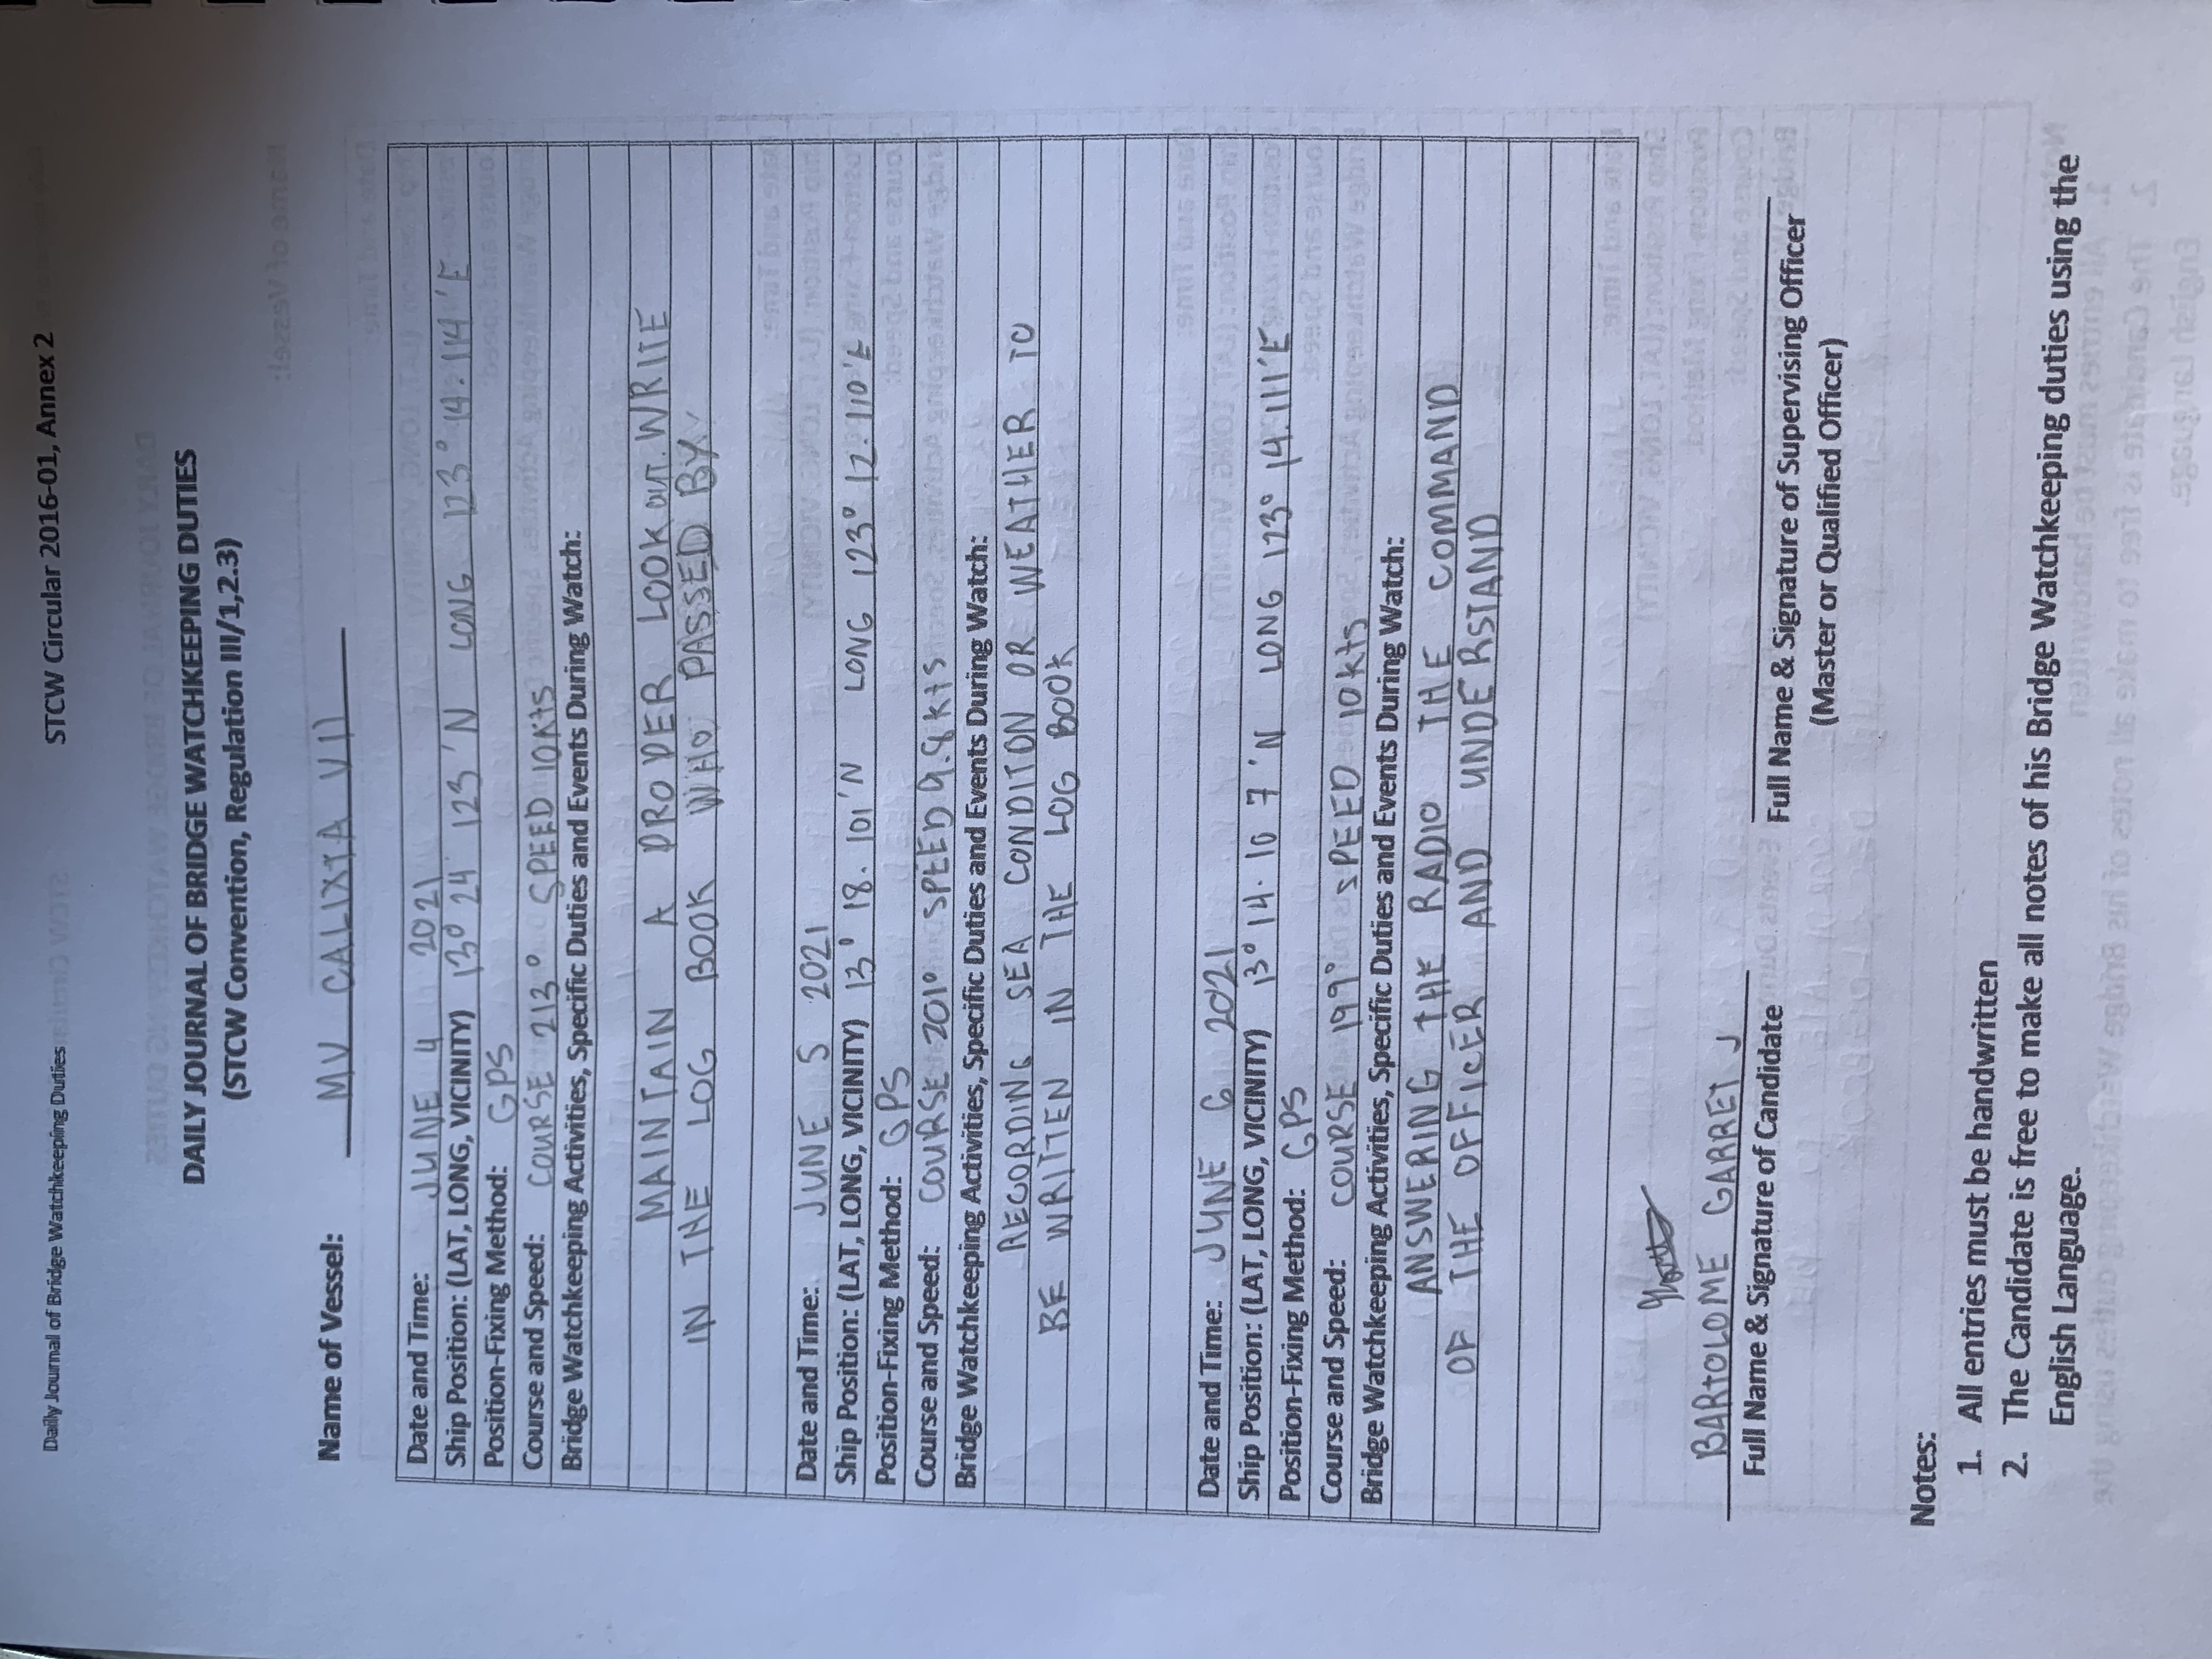 Daily Journal of Bridge Watchkeeping Duties STCW Circular 2016-01, Annex 2
DAILY JOURNAL OF BRIDGE WATCHKEEPING DUTIES
(STCW Convention, Regulation III/1,2.3)
Name of Vessel: MV CALIXTA VII
Date and Time: JUNE 4 2021
Ship Position: (LAT, LONG, VICINITY) 13° 24 123 'N LONG 123° 14. 114 'E
Position-Fixing Method: GPS
Course and Speed: COURSE 213° SPEED 10 Kts
Bridge Watchkeeping Activities, Specific Duties and Events During Watch:
MAINTAIN A PROPER LOOK OUT. WRITE
IN THE LOG BOOK WHO PASSED BY
Date and Time: JUNE 5 2021
Ship Position: (LAT, LONG, VICINITY) 13° 18. 101 'N LONG 123° 12. 110 'E
Position-Fixing Method: GPS
Course and Speed: COURSE 201° SPEED 9.8 kts
Bridge Watchkeeping Activities, Specific Duties and Events During Watch:
RECORDING SEA CONDITON OR WEATHER TO
BE WRITTEN IN THE LOG BOOK
Date and Time: JUNE 6 2021
Ship Position: (LAT, LONG, VICINITY) 13° 14. 10 7 'N LONG 123° 14. 111 'E
Position-Fixing Method: GPS
Course and Speed: COURSE 199° SPEED 10 kts
Bridge Watchkeeping Activities, Specific Duties and Events During Watch:
ANSWERING THE RADIO THE COMMAND
OF THE OFFICER AND UNDERSTAND
BARTOLOME GARRET J
Full Name & Signature of Candidate
Full Name & Signature of Supervising Officer
(Master or Qualified Officer)
Notes:
1. All entries must be handwritten
2. The Candidate is free to make all notes of his Bridge Watchkeeping duties using the
English Language.